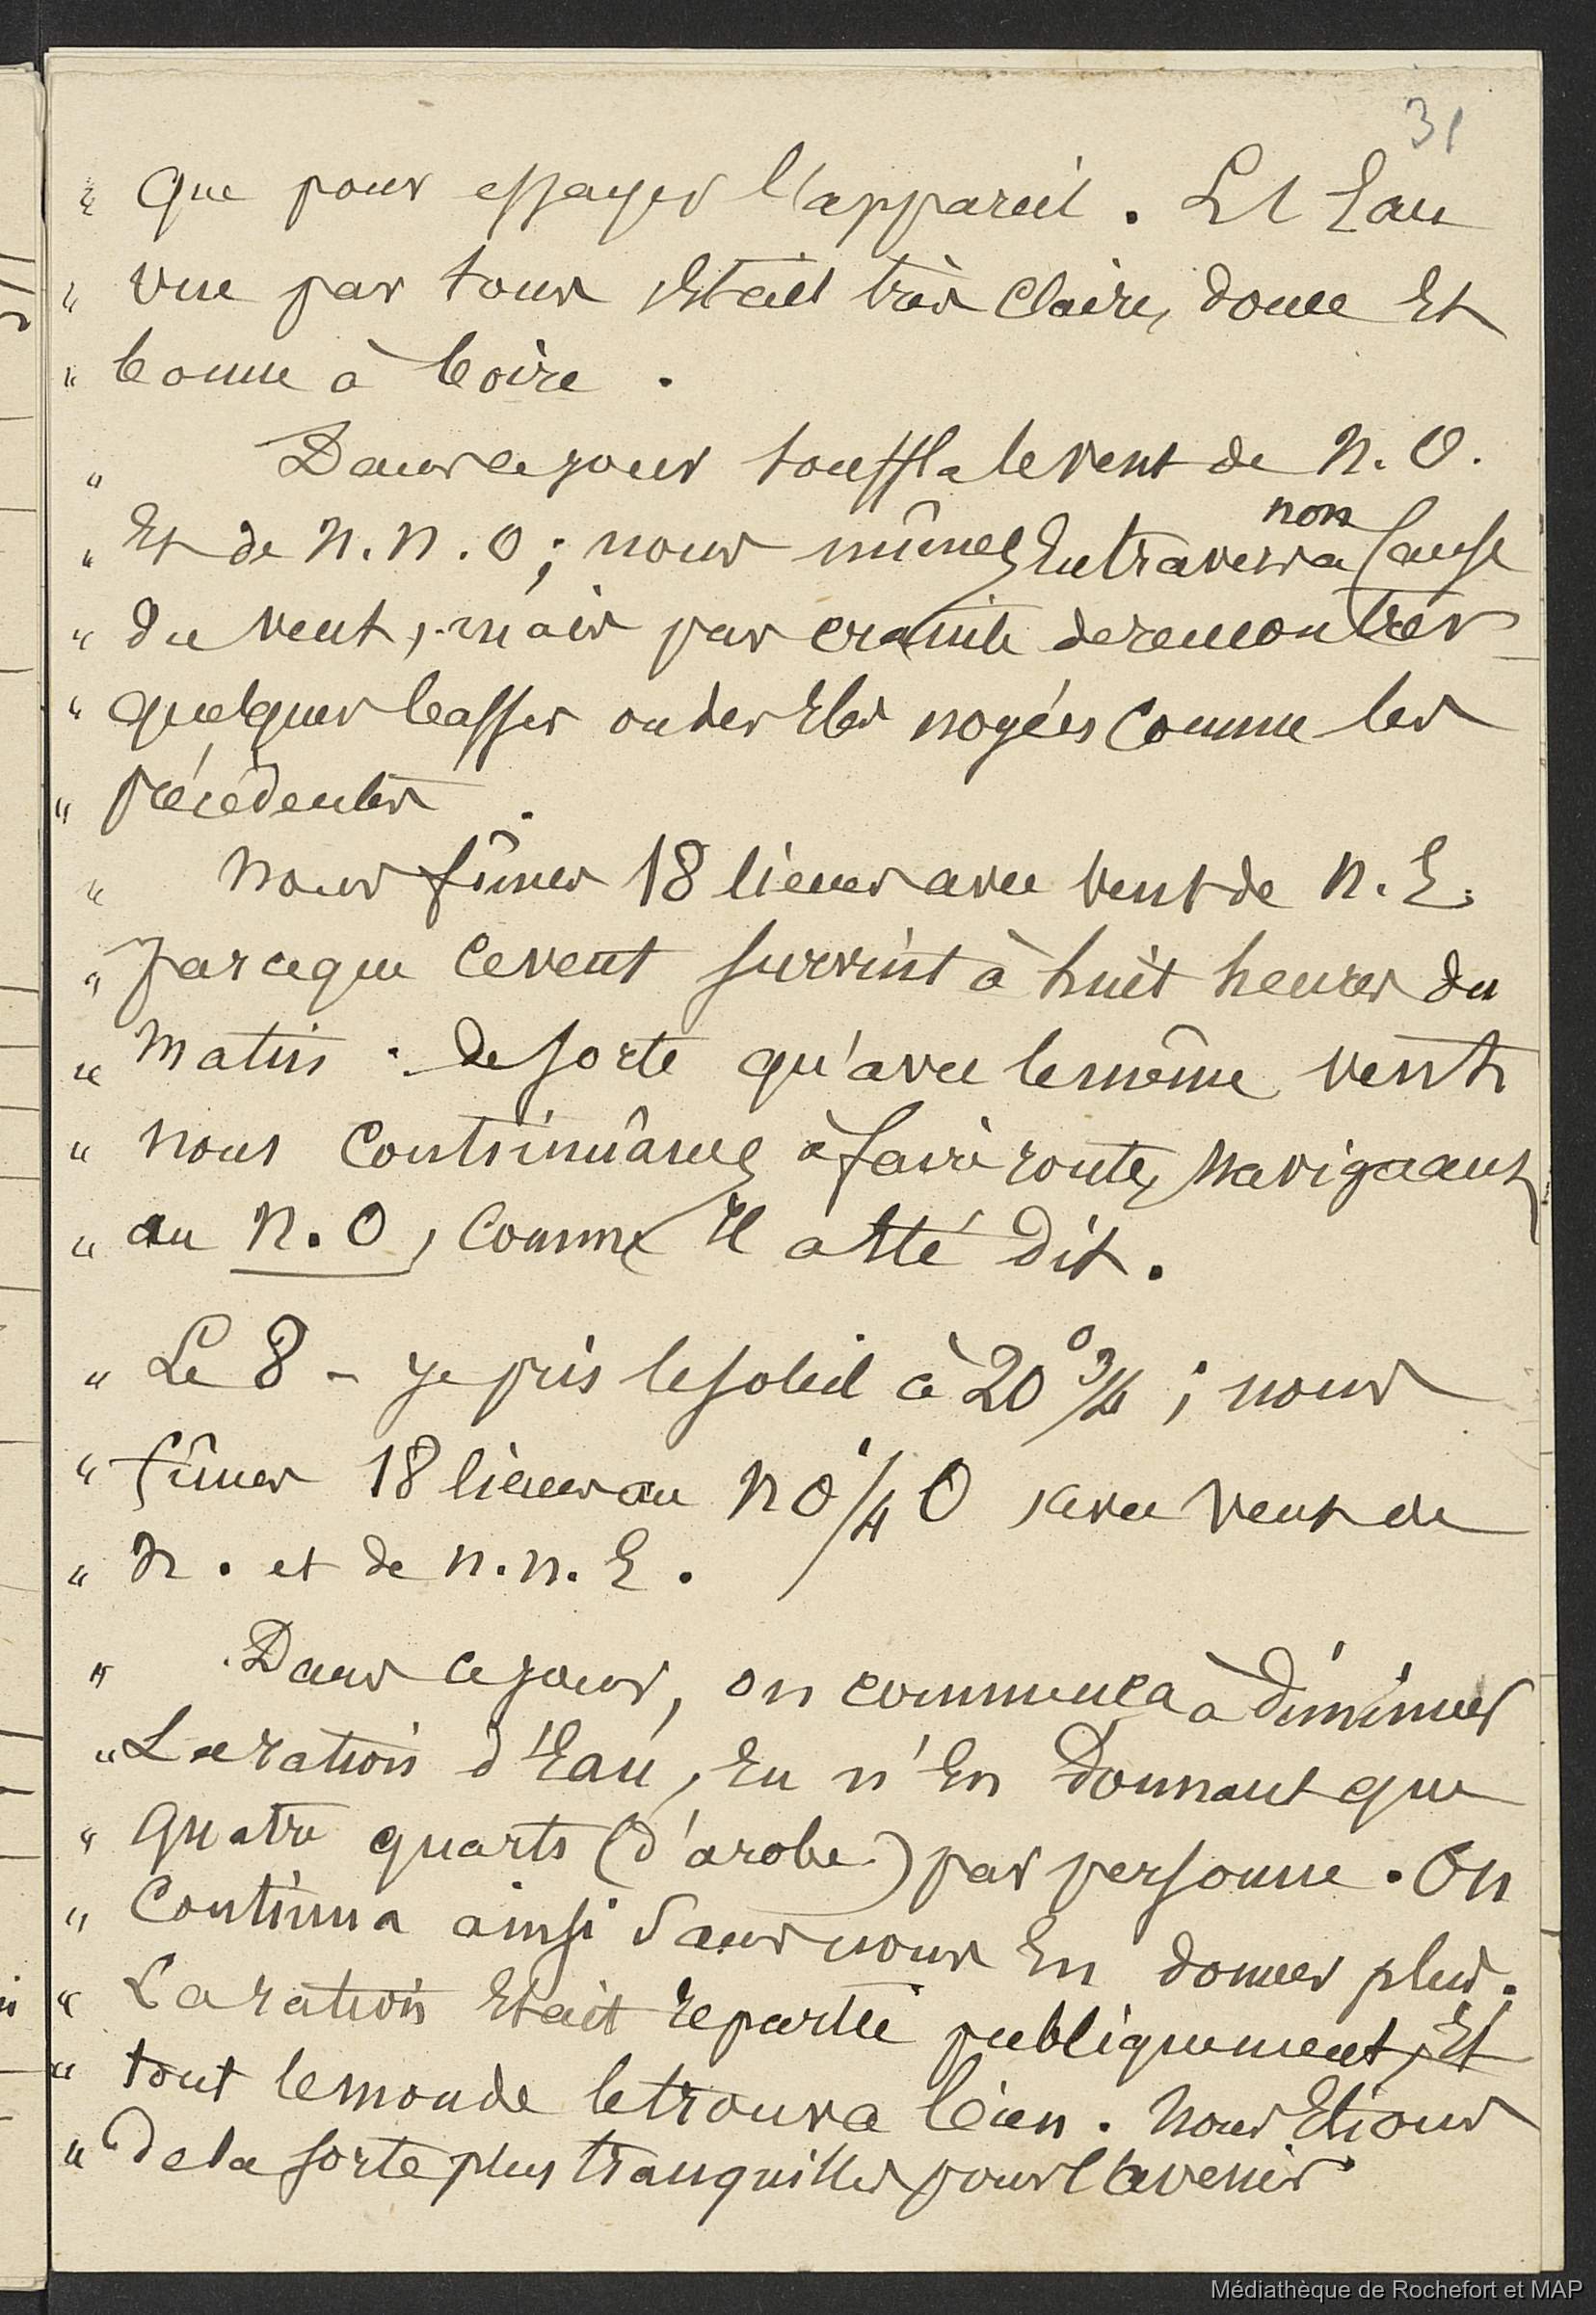 31
" Que pour essayer l'appareil. Et l'Eau
" vue par tous Etait très Claire, douce Et
" bonne à boire.
" Dans ce jour souffla le vent de N. O.
" Et de N. N. O ; nous mîmes En travers non à Cause
" du vent, mais par crainte de rencontrer
" quelques basses ou des Iles noyées Comme les
" précédentes.
" Nous fîmes 18 lieues avec vent de N. E.
" parceque ce vent survint à huit heures du
" matin : de sorte qu'avec le même vent
" nous Continuâmes à faire route, Naviguant
" au N. O, Comme Il a Eté dit.
" Le 8 - je pris le soleil à 20° 3/4 ; nous
" fîmes 18 lieues au N O 1/4 O, avec vent de
" N. et de N. N. E.
" Dans ce jour, on commença à diminuer
" La ration d'Eau, En n'En Donnant que
" Quatre quarts (d'arobe) par personne. On
" Continua ainsi Sans nous En donner plus.
" La ration Etait repartie publiquement, Et
" tout le monde le trouva bien. Nous Etions
" de la sorte plus tranquilles pour l'avenir
Médiathèque de Rochefort et MAP